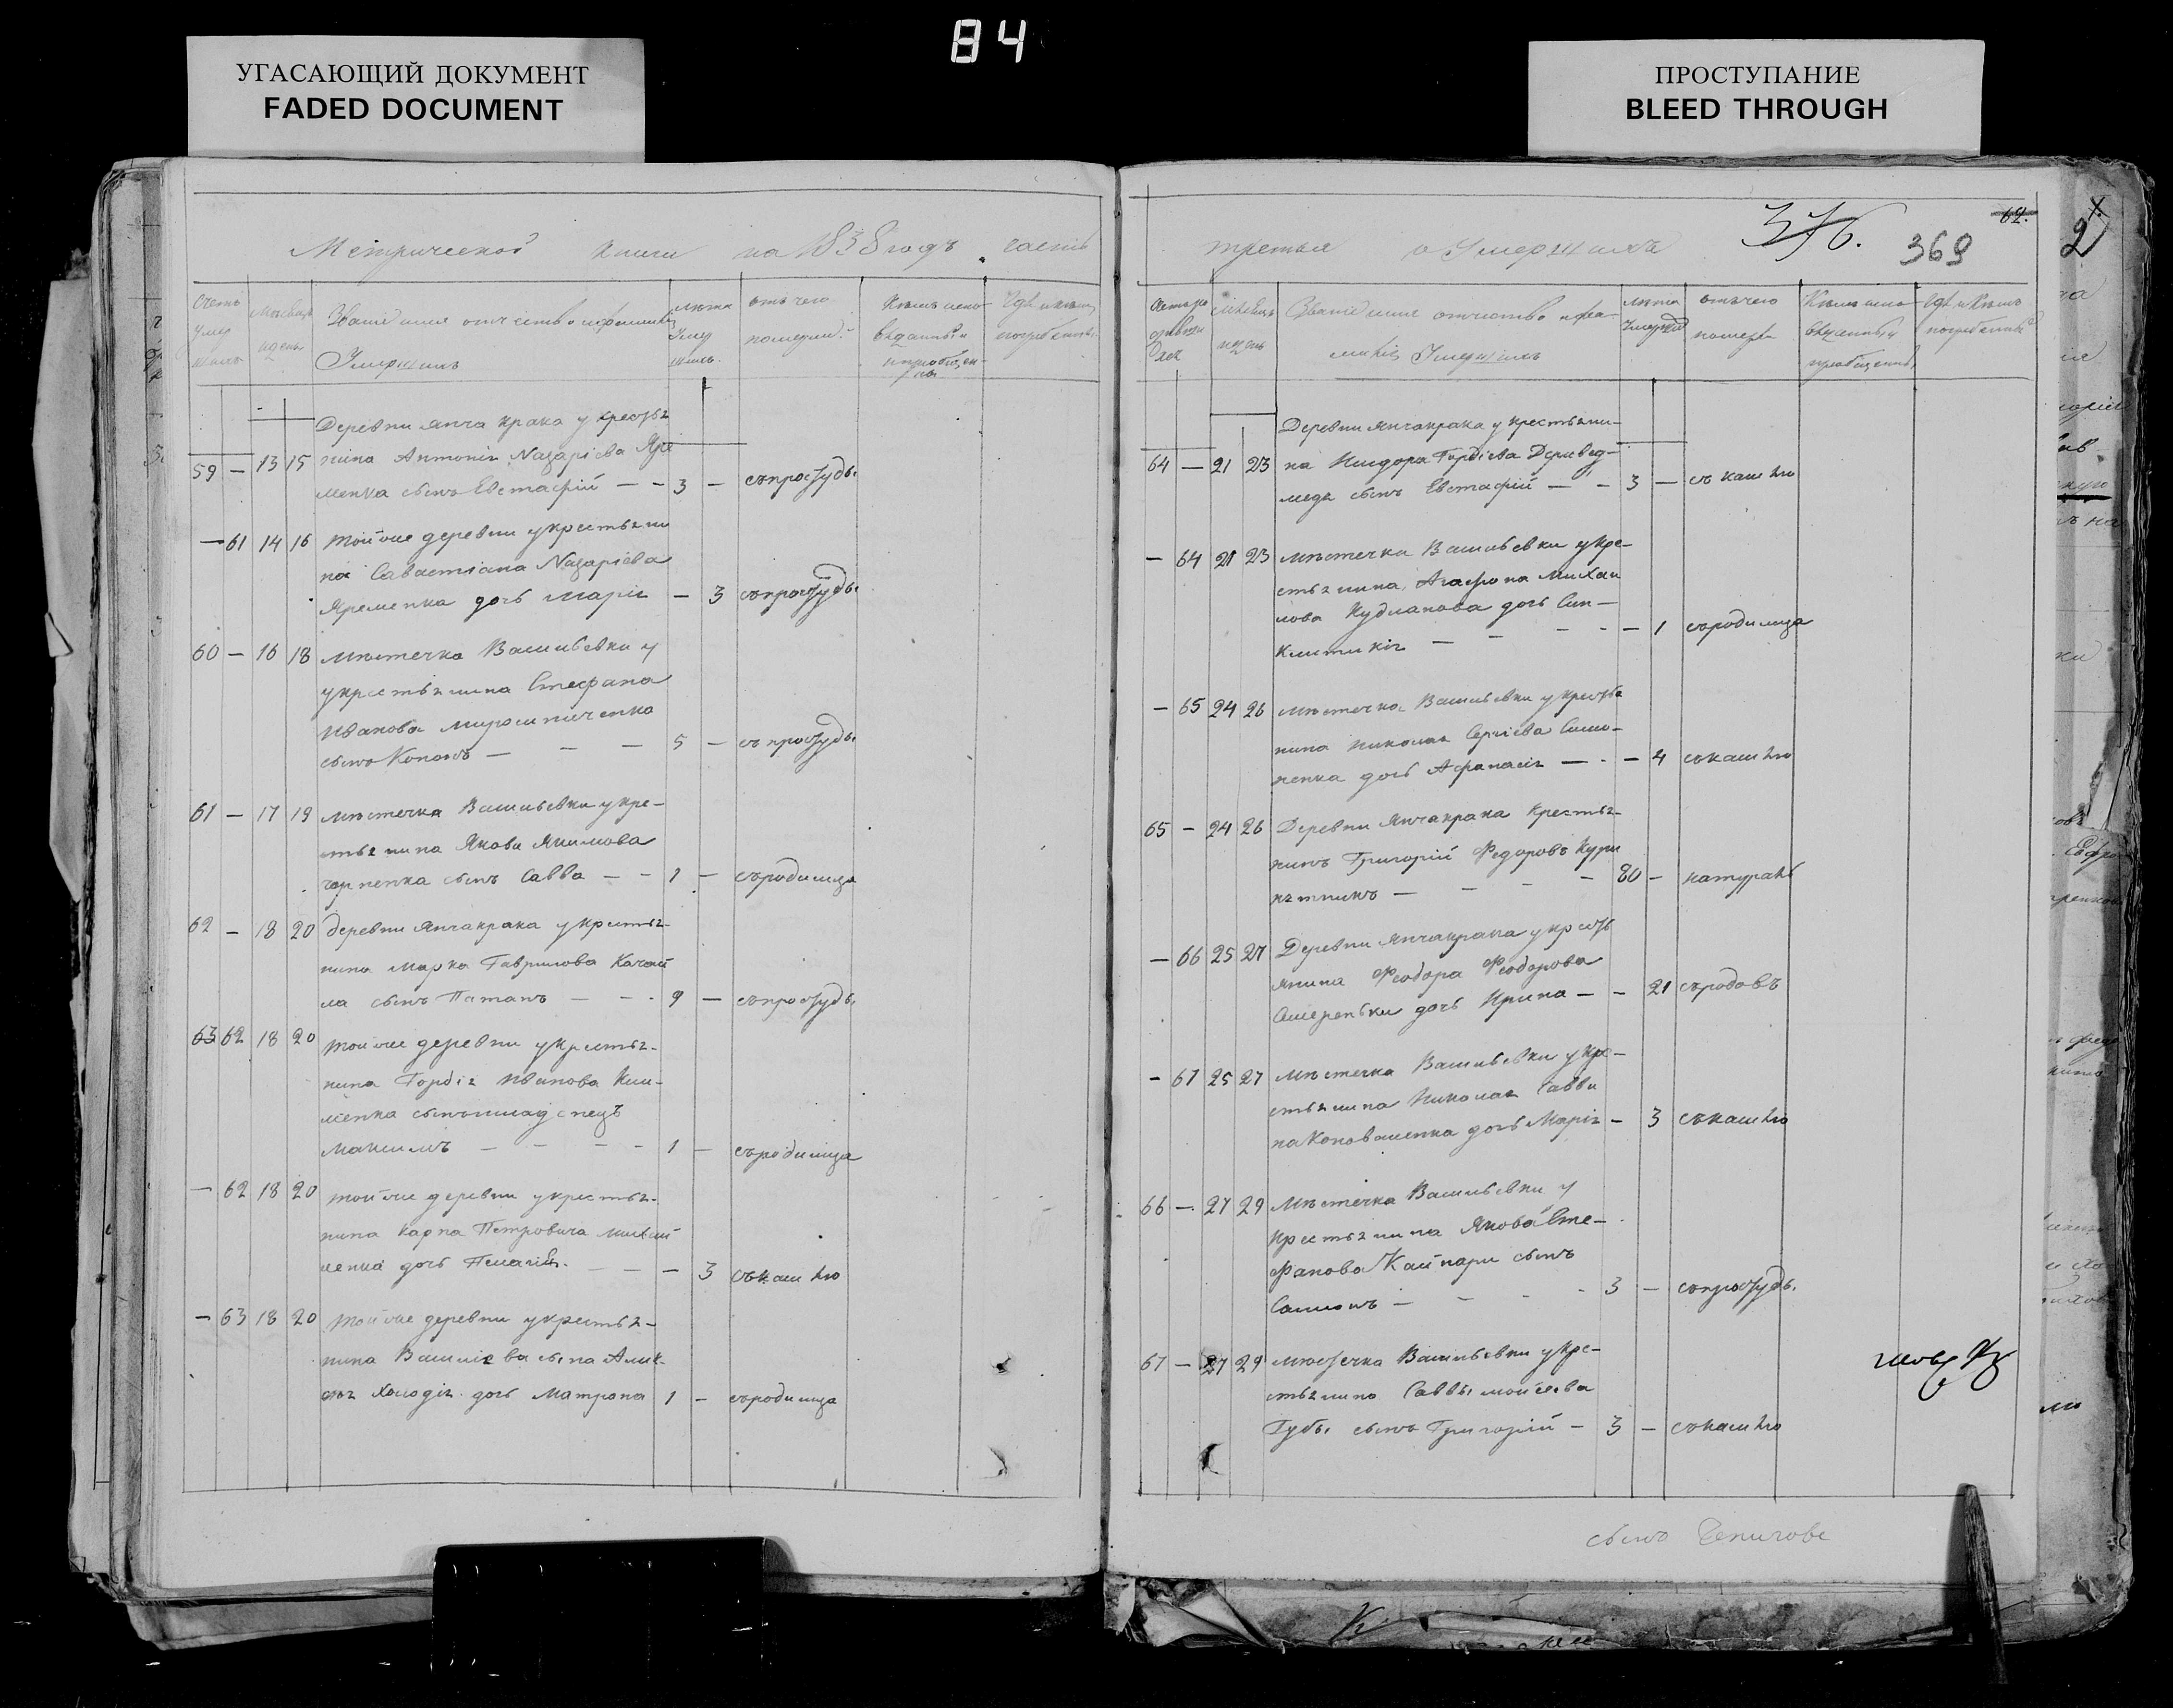 84
УГАСАЮЩИЙ ДОКУМЕНТ
FADED DOCUMENT
ПРОСТУПАНИЕ
BLEED THROUGH
Метрической книги на 1838 годъ часть
Счетъ умершихъ
мѣсяцъ и день
Званіе имя отчество и фамилія Умершихъ
лѣта Умершихъ
отъ чего померли
Кѣмъ исповѣданы и приобщены
Гдѣ и кѣмъ погребены
Деревни Янчакрака у крестья
59 — 13 15 нина Антонія Назарієва Яре
менка сынъ Евстафій — — 3 — съпростуды
— 61 14 16 той же деревни укрестьяни
на Савастіана Назарієва
Яременка дочь Марія — 3 съпростуды
60 — 16 18 мѣстечка Васильевки у
укрестьянина Стефана
Иванова Мирошниченка
сынъ Кононъ — — — 5 — съпростуды
61 — 17 19 мѣстечка Васильевки укре-
стьянина Якова Якимова
сынъ Савва — — 1 — съродимца
62 — 18 20 деревни Янчакрака укрестья-
нина Марка Гаврилова Качай
ла сынъ Патапъ — — 9 — съпростуды
63 62 18 20 той же деревни укрестья-
нина Гордія Иванова Кли-
менка сынъ младенецъ
Максимъ — — — — 1 — съродимца
— 62 18 20 той же деревни укрестья-
нина Карпа Петровича Михай
ленка дочь Пелагія — — — 3 съкашлю
— 63 18 20 той же деревни укрестья-
нина Василієва сына Алек-
сія Холодія дочь Матрона 1 — съродимца
третья о Умершихъ
376.
369
62.
2
мѣсяцъ и день
Званіе имя отчество и фа-
милія Умершихъ
лѣта Умершихъ
отъ чего померъ
Кѣмъ исповѣданы и приобщены
Гдѣ и кѣмъ погребены
Деревни Янчакрака у крестьяни-
64 — 21 23 на Исидора Гордієва Деривед-
медя сынъ Евстафій — — 3 — съкашлю
— 64 21 23 мѣстечка Васильевки укре-
стьянина Агафона Михаи
лова Кудланова дочь Син-
клитикія — — — — 1 съродимца
— 65 24 26 мѣстечка Васильевки укрестья
нина Николая Сергієва Симо-
ненка дочь Афанасія — — — 4 съкашлю
65 — 24 26 Деревни Янчакрака крестья-
нинъ Григорій Федоровъ Кури
нятникъ — — — — 80 — натурально
— 66 25 27 Деревни Янчакрака укресть
янина Феодора Феодорова
дочь Ирина — — 21 съродовъ
— 67 25 27 Мѣстечка Васильевки укре-
стьянина Николая Савви
на Коноваленка дочь Марія — 3 съкашлю
66 — 27 29 Мѣстечка Васильевки у
крестьянина Якова Сте-
фанова Кайпари сынъ
Самсонъ — — — — 3 — съпростуды
67 — 27 29 мѣстечка Васильевки укре-
стьянина Саввы Мойсеева
Губы сынъ Григорій — 3 — съкашлю